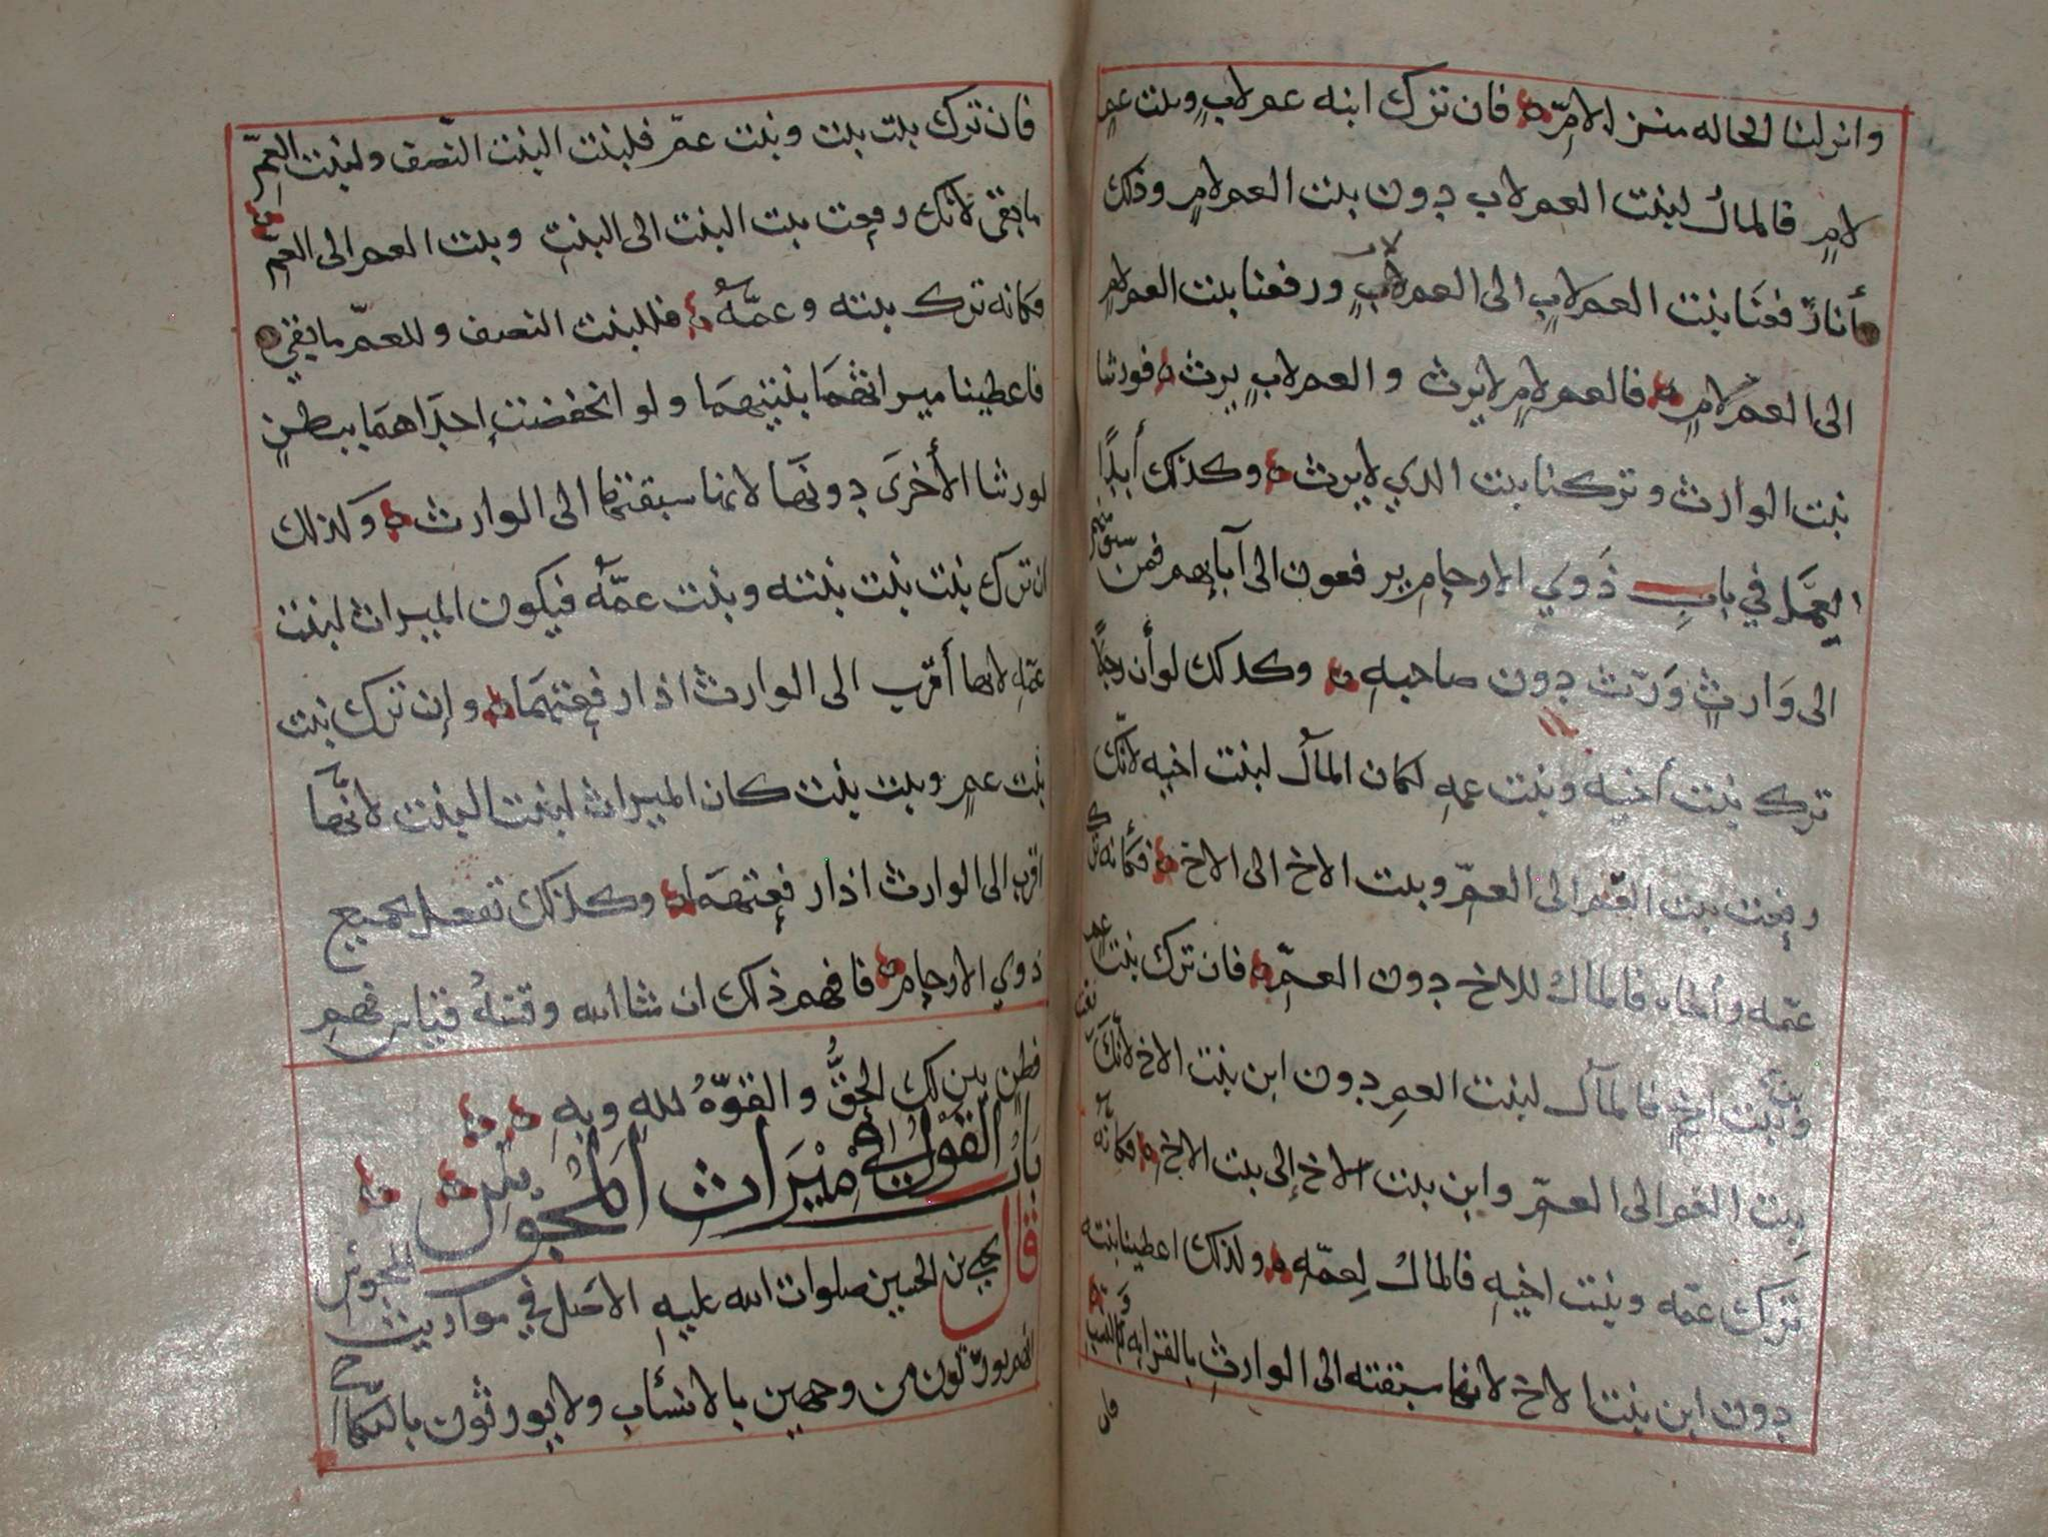 وانزلنا الخاله منزل الام فان ترك ابنه عم لابٍ وبنت عمٍ
لامٍ فالمال لبنت العم لاب دون بنت العم لامٍ وذلك
أنا رفعنا بنت العم لابٍ الى العم لابٍ ورفعنا بنت العم لامٍ
الى العم لامٍ فالعم لامٍ لايرث والعم لابٍ يرث فورثنا
بنت الوارث وتركنا بنت الذي لايرث وكذلك أبدًا
العمل في باب ذوي الارحام يرفعون الى آبايهم فمن سبق منهم
الى وارثٍ ورّث دون صاحبه وكذلك لو أن رجلًا
ترك بنت أخيه وبنت عمه لكان المال لبنت اخيه لانّك
رفعت بنت العم الى العمّ وبنت الاخ الى الاخ فكأنه ترك
عمّه وأخاه فالمال للاخ دون العمّ فان ترك بنت عم
وابن بنت اخٍ فالمال لبنت العم دون ابن بنت الاخ لانّك رفعت
بنت العم الى العمّ وابن بنت الاخ إلى بنت الاخ فكانه
ترك عمّه وبنت اخيه فالمال لعمّه ولذلك اعطينا بنته
دون ابن بنت الاخ لانها سبقته الى الوارث بالقرابه والنسب
فان
فان ترك بنت بنت وبنت عمّ فلبنت البنت النّصف ولبنت العمّ
مابقى لانك رفعت بنت البنت الى البنت وبنت العم الى العمّ
فكانه ترك بنته وعمّهُ فللبنت النصف وللعمّ مابقي
فاعطينا ميراثهما بنتيهما ولو انخفضت إحداهما ببطنٍ
لورثنا الأخرى دونها لانها سبقتها الى الوارث وكذلك
ان ترك بنت بنت بنته وبنت عمّه فيكون الميراث لبنت
عمّه لانها أقرب الى الوارث اذا رفعتهما وإن ترك بنت
بنت عمٍ وبنت بنت كان الميراث لبنت البنت لانّها
اقرب الى الوارث اذا رفعتهما وكذلك تفعل بجميع
ذوي الارحام فافهم ذلك ان شاالله وقسهُ قياس فهم
فطنٍ يبن لك الحقُّ والقوّهُ لله وبه
باب القول في ميراث المجوس
قال يحيى بن الحسين صلوات الله عليه الاصل في مواريث المجوس
أنهم يورثون من وجهين بالانساب ولايورثون بالنكاح